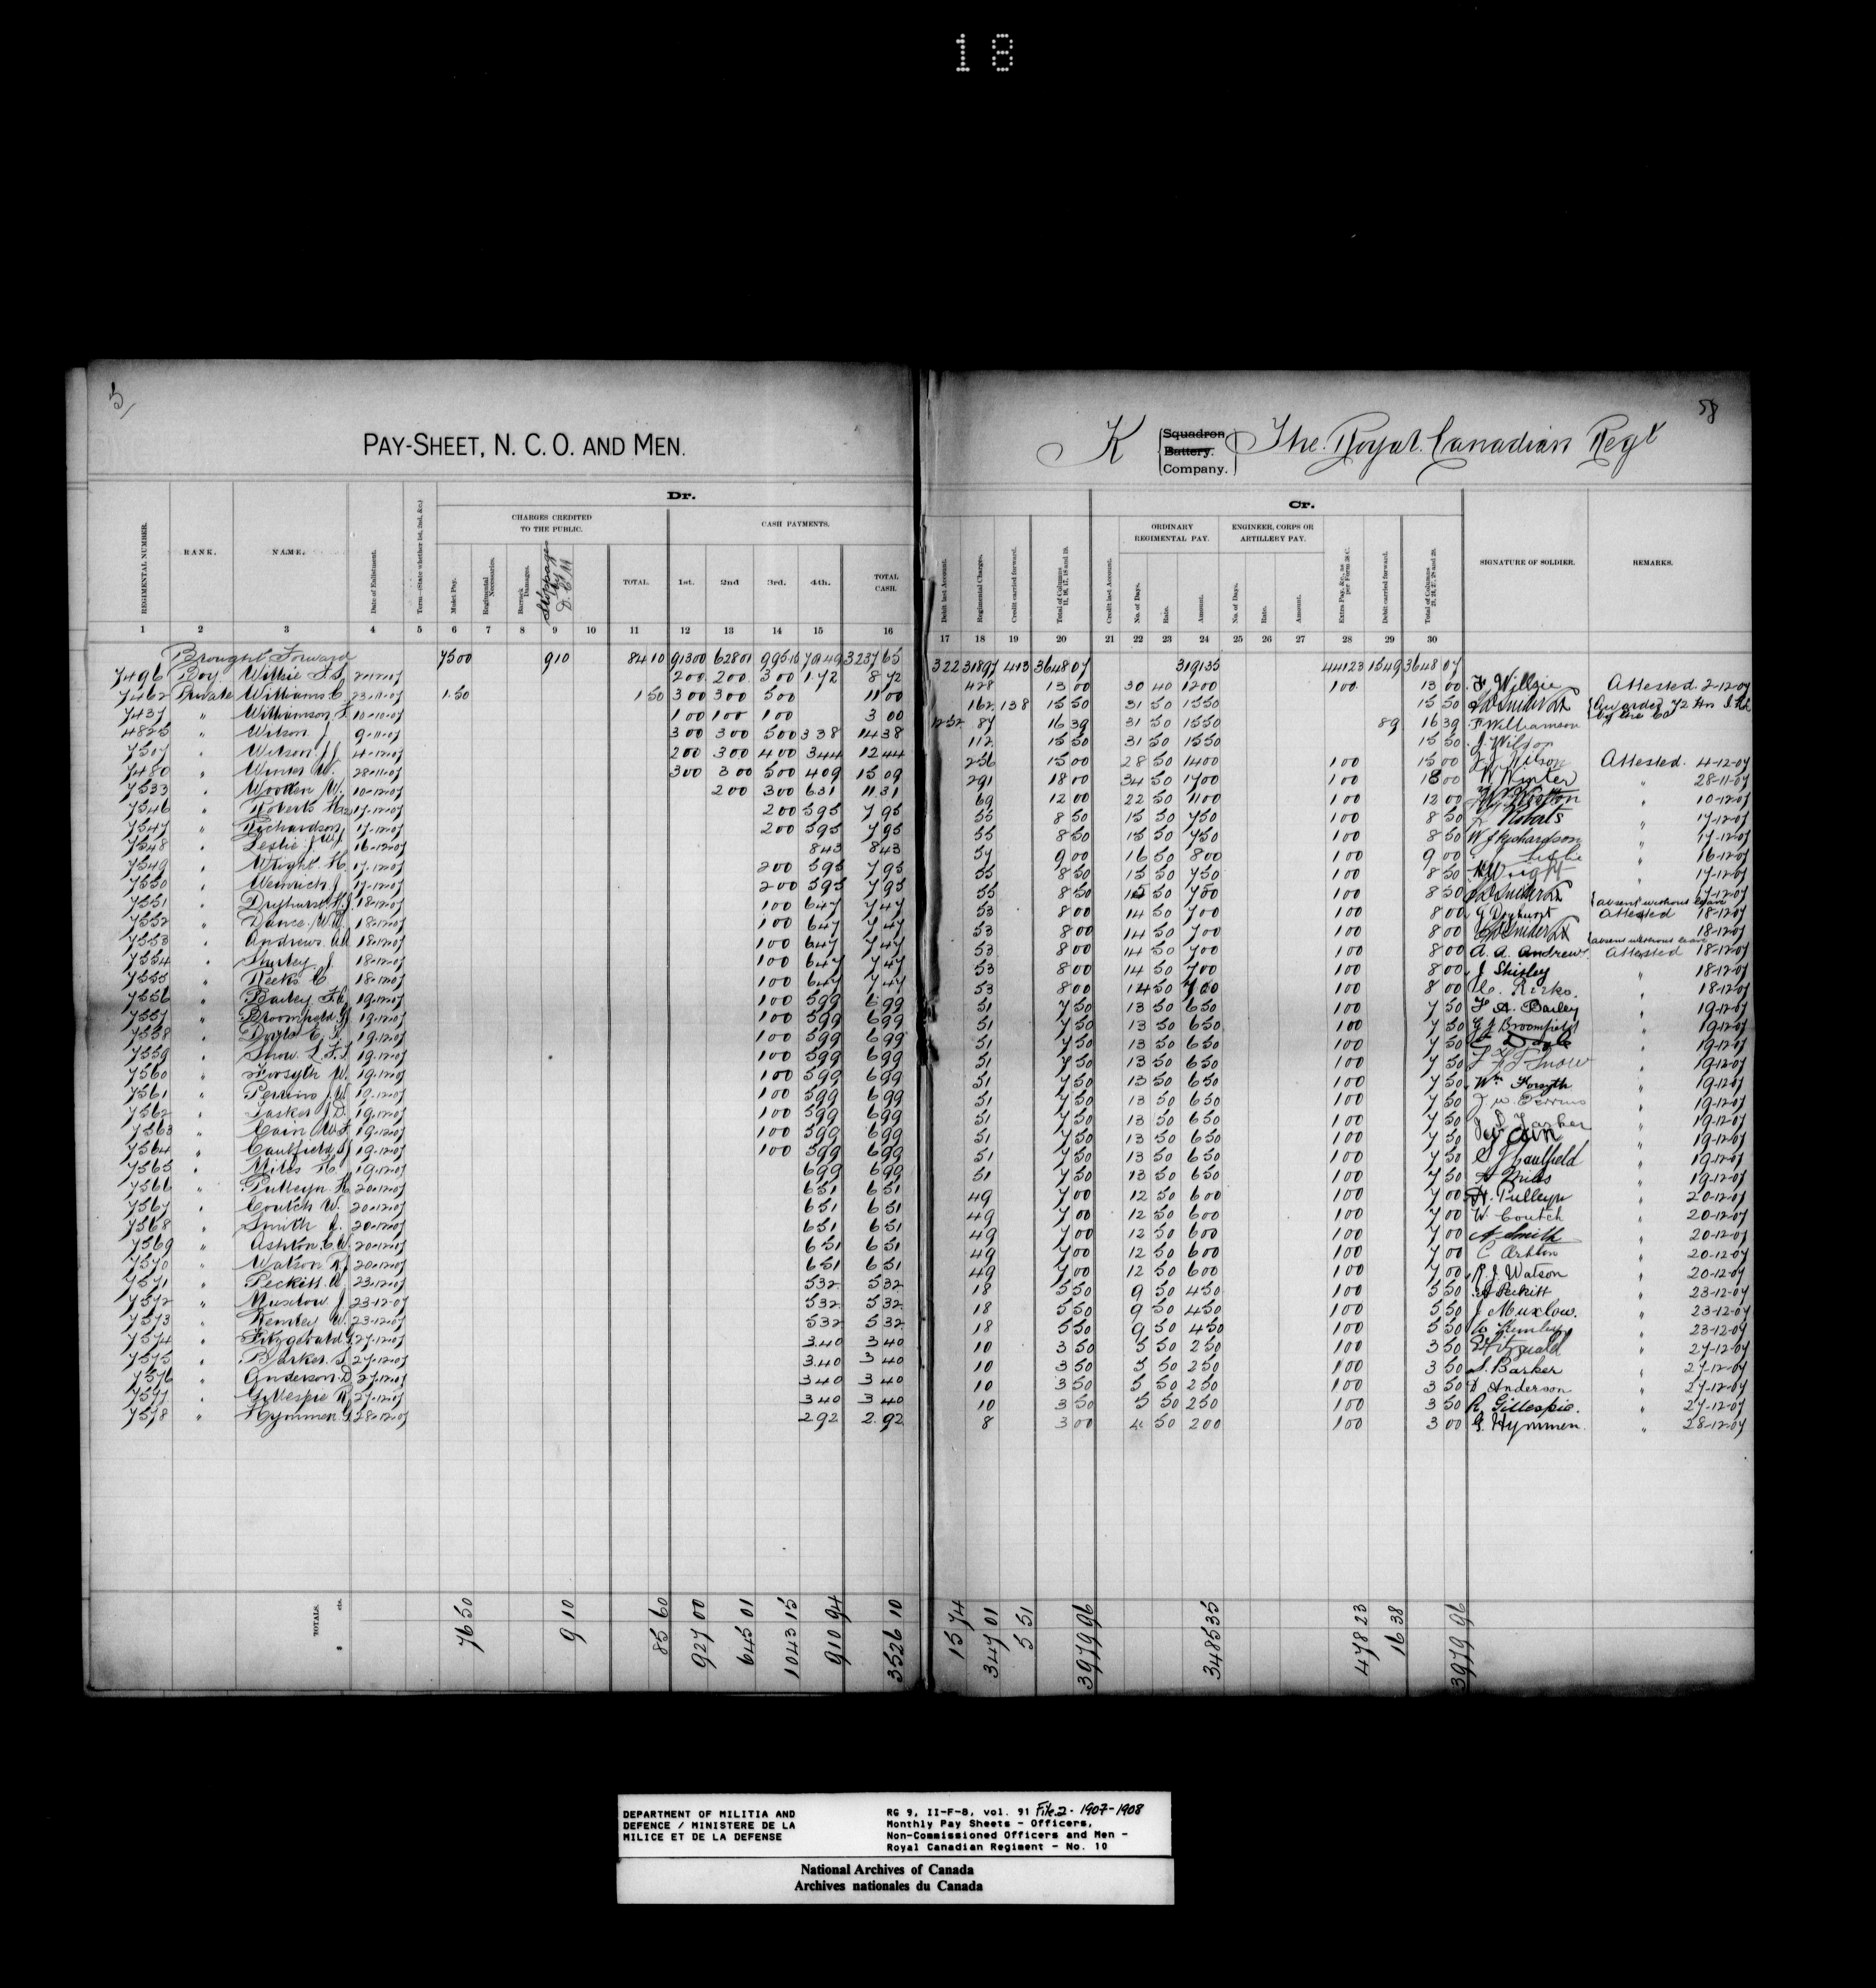 18
5
PAY-SHEET, N. C. O. AND MEN.
K Squadron Battery. Company. The Royal Canadian Regt
58
Dr.
Cr.
CHARGES CREDITED TO THE PUBLIC.
CASH PAYMENTS.
ORDINARY REGIMENTAL PAY.
ENGINEER, CORPS OR ARTILLERY PAY.
REGIMENTAL NUMBER. RANK. NAME. Date of Enlistment. Term—(State whether 1st, 2nd, &c.) Mulct Pay. Regimental Necessaries. Barrack Damages. Stoppages by D.C.M TOTAL. 1st. 2nd 3rd. 4th. TOTAL CASH.
Debit last Account. Regimental Charges. Credit carried forward. Total of Columns 11, 16, 17, 18 and 19. Credit last Account. No. of Days. Rate. Amount. No. of Days. Rate. Amount. Extra Pay, &c., as per Form 38 C. Debit carried forward. Total of Columns 21, 24, 27, 28 and 29. SIGNATURE OF SOLDIER. REMARKS.
1 2 3 4 5 6 7 8 9 10 11 12 13 14 15 16 17 18 19 20 21 22 23 24 25 26 27 28 29 30
Brought Forward 75 00 9 10 84 10 913 00 628 01 995 15 701 49 3237 65 3 22 318 97 4 13 3648 07 3191 35 441 23 15 49 3648 07
7496 Boy 2-12-07 2 00 2 00 3 00 1 72 8 72 4 28 13 00 30 40 12 00 1 00 13 00 Attested 2-12-07
7462 Private Williams C 23-11-07 1.50 1 50 3 00 3 00 5 00 11 00 1 62 1 38 15 50 31 50 15 50 15 50 Awarded 72 Hrs by the Co
7437 " Williamson F 10-10-07 1 00 1 00 1 00 3 00 12 52 87 16 39 31 50 15 50 89 16 39 F Williamson
4825 " Wilson J 9-11-07 3 00 3 00 5 00 3 38 14 38 1 12 15 50 31 50 15 50 15 50 J. Wilson
7507 " Wilson J J 4-12-07 2 00 3 00 4 00 3 44 12 44 2 56 15 00 28 50 14 00 1 00 15 00 J J Wilson Attested. 4-12-07
7480 " Winter W. 28-11-07 3 00 3 00 5 00 4 09 15 09 2 91 18 00 34 50 17 00 1 00 18 00 W Winter " 28-11-07
7533 " Wooden W. 10-12-07 2 00 3 00 6 31 11 31 69 12 00 22 50 11 00 1 00 12 00 " 10-12-07
7546 " Roberts 17-12-07 2 00 5 95 7 95 55 8 50 15 50 7 50 1 00 8 50 Roberts " 17-12-07
7547 " Richardson 17-12-07 2 00 5 95 7 95 55 8 50 15 50 7 50 1 00 8 50 W J Richardson " 17-12-07
7548 " Leslie J W 16-12-07 8 43 8 43 57 9 00 16 50 8 00 1 00 9 00 Leslie " 16-12-07
7549 " Wright H. 17-12-07 2 00 5 95 7 95 55 8 50 15 50 7 50 1 00 8 50 H Wright " 17-12-07
7550 " J. 17-12-07 2 00 5 95 7 95 55 8 50 15 50 7 50 1 00 8 50 " 17-12-07 absent without leave
7551 " Dryhurst 18-12-07 1 00 6 47 7 47 53 8 00 14 50 7 00 1 00 8 00 G Dryhurst Attested 18-12-07
7552 " Dance. W. 18-12-07 1 00 6 47 7 47 53 8 00 14 50 7 00 1 00 8 00 18-12-07 absent without leave
7553 " Andrews AA 18-12-07 1 00 6 47 7 47 53 8 00 14 50 7 00 1 00 8 00 A. A. Andrews. Attested 18-12-07
7554 " Shirley J 18-12-07 1 00 6 47 7 47 53 8 00 14 50 7 00 1 00 8 00 J Shirley " 18-12-07
7555 " Reeks C 18-12-07 1 00 6 47 7 47 53 8 00 14 50 7 00 1 00 8 00 C. " 18-12-07
7556 " Bailey F.A. 19-12-07 1 00 5 99 6 99 51 7 50 13 50 6 50 1 00 7 50 F A. Bailey " 19-12-07
7557 " Broomfield G 19-12-07 1 00 5 99 6 99 51 7 50 13 50 6 50 1 00 7 50 G J Broomfield " 19-12-07
7558 " Doyle C. 19-12-07 1 00 5 99 6 99 51 7 50 13 50 6 50 1 00 7 50 C Doyle " 19-12-07
7559 " Snow L F 19-12-07 1 00 5 99 6 99 51 7 50 13 50 6 50 1 00 7 50 Snow " 19-12-07
7560 " Forsyth W. 19-12-07 1 00 5 99 6 99 51 7 50 13 50 6 50 1 00 7 50 Wm Forsyth " 19-12-07
7561 " Perrins J.W 19-12-07 1 00 5 99 6 99 51 7 50 13 50 6 50 1 00 7 50 J w. Perrins " 19-12-07
7562 " Tasker J.D. 19-12-07 1 00 5 99 6 99 51 7 50 13 50 6 50 1 00 7 50 J. D. Tasker " 19-12-07
7563 " Cain W 19-12-07 1 00 5 99 6 99 51 7 50 13 50 6 50 1 00 7 50 Cain " 19-12-07
7564 " Caulfield 19-12-07 1 00 5 99 6 99 51 7 50 13 50 6 50 1 00 7 50 Caulfield " 19-12-07
7565 " Miles H. 19-12-07 6 99 6 99 51 7 50 13 50 6 50 1 00 7 50 Miles " 19-12-07
7566 " Pulleyn H 20-12-07 6 51 6 51 49 7 00 12 50 6 00 1 00 7 00 H. Pulleyn " 20-12-07
7567 " Coutch W. 20-12-07 6 51 6 51 49 7 00 12 50 6 00 1 00 7 00 W Coutch " 20-12-07
7568 " Smith A. 20-12-07 6 51 6 51 49 7 00 12 50 6 00 1 00 7 00 A Smith " 20-12-07
7569 " Ashton. C.W. 20-12-07 6 51 6 51 49 7 00 12 50 6 00 1 00 7 00 C Ashton " 20-12-07
7570 " Watson R J 20-12-07 6 51 6 51 49 7 00 12 50 6 00 1 00 7 00 R. J. Watson " 20-12-07
7571 " Peckitt. 23-12-07 5 32 5 32 18 5 50 9 50 4 50 1 00 5 50 Peckitt " 23-12-07
7572 " Muxlow J 23-12-07 5 32 5 32 18 5 50 9 50 4 50 1 00 5 50 J Muxlow. " 23-12-07
7573 " Kemley W. 23-12-07 5 32 5 32 18 5 50 9 50 4 50 1 00 5 50 W Kemley " 23-12-07
7574 " Fitzgerald 27-12-07 3.40 3 40 10 3 50 5 50 2 50 1 00 3 50 Fitzgerald " 27-12-07
7575 " Barker. S 27-12-07 3.40 3 40 10 3 50 5 50 2 50 1 00 3 50 S. Barker " 27-12-07
7576 " Anderson. D 27-12-07 3 40 3 40 10 3 50 5 50 2 50 1 00 3 50 D Anderson " 27-12-07
7577 " Gillespie R 27-12-07 3 40 3 40 10 3 50 5 50 2 50 1 00 3 50 R Gillespie. " 27-12-07
7578 " Hymmen. G 28-12-07 2 92 2.92 8 3 00 4 50 2 00 1 00 3 00 G. Hymmen. " 28-12-07
TOTALS. $ cts. 76 50 9 10 85 60 927 00 645 01 1043 15 910 94 3526 10 15 74 347 01 5 51 3979 96 3485 35 478 23 16 38 3979 96
DEPARTMENT OF MILITIA AND DEFENCE / MINISTERE DE LA MILICE ET DE LA DEFENSE
RG 9, II-F-8, vol. 91 File 2 - 1907-1908
Monthly Pay Sheets - Officers,
Non-Commissioned Officers and Men -
Royal Canadian Regiment - No. 10
National Archives of Canada
Archives nationales du Canada